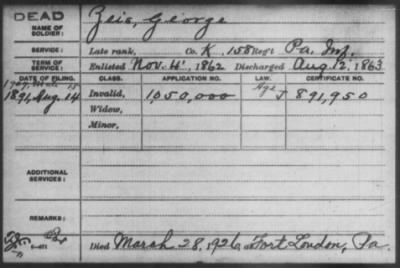 DEAD
NAME OF SOLDIER: Zeis, George
SERVICE: Late rank, Co. K, 158 Reg't Pa. Inf.
TERM OF SERVICE: Enlisted Nov. 4, 1862 Discharged Aug. 12, 1863
DATE OF FILING. CLASS. APPLICATION NO. LAW. CERTIFICATE NO.
15 Age
1891, Aug. 14 Invalid, 1,050,000 J 891,950
Widow,
Minor,
ADDITIONAL SERVICES:
REMARKS:
Died March 28, 1926, at Fort Loudon, Pa.